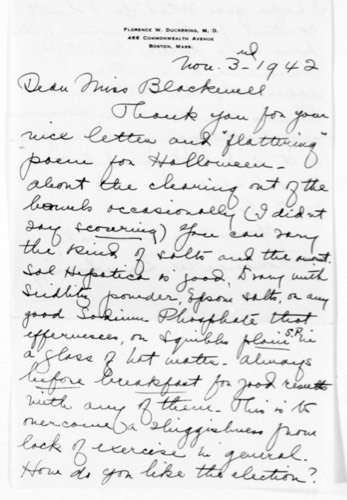 FLORENCE W. DUCKERING, M. D.
466 COMMONWEALTH AVENUE
BOSTON, MASS.
Nov. 3rd - 1942
Dear Miss Blackwell
Thank you for your
nice letter and "flattering"
poem for Halloween -
about the clearing out of the
bowels occasionally (I didn't
say scouring) You can vary
the kind of salts and the amt.
Sal Hepatica is good, & vary with
Seidlitz powder, Epsom salts, or any
good Sodium Phosphate that
effervesces, or Squibbs plain S.P. in
a glass of hot water - always
before breakfast for good results
with any of them. This is to
overcome a sluggishness from
lack of exercise in general.
How do you like the election?